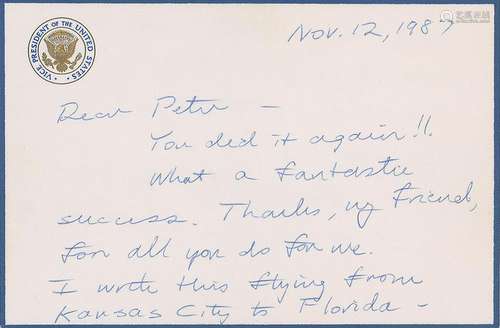 VICE PRESIDENT OF THE UNITED STATES
Nov. 12, 1987
Dear Peter —
You did it again!!
What a fantastic
success. Thanks, my friend,
for all you do for me.
I wrote this flying from
Kansas City to Florida —